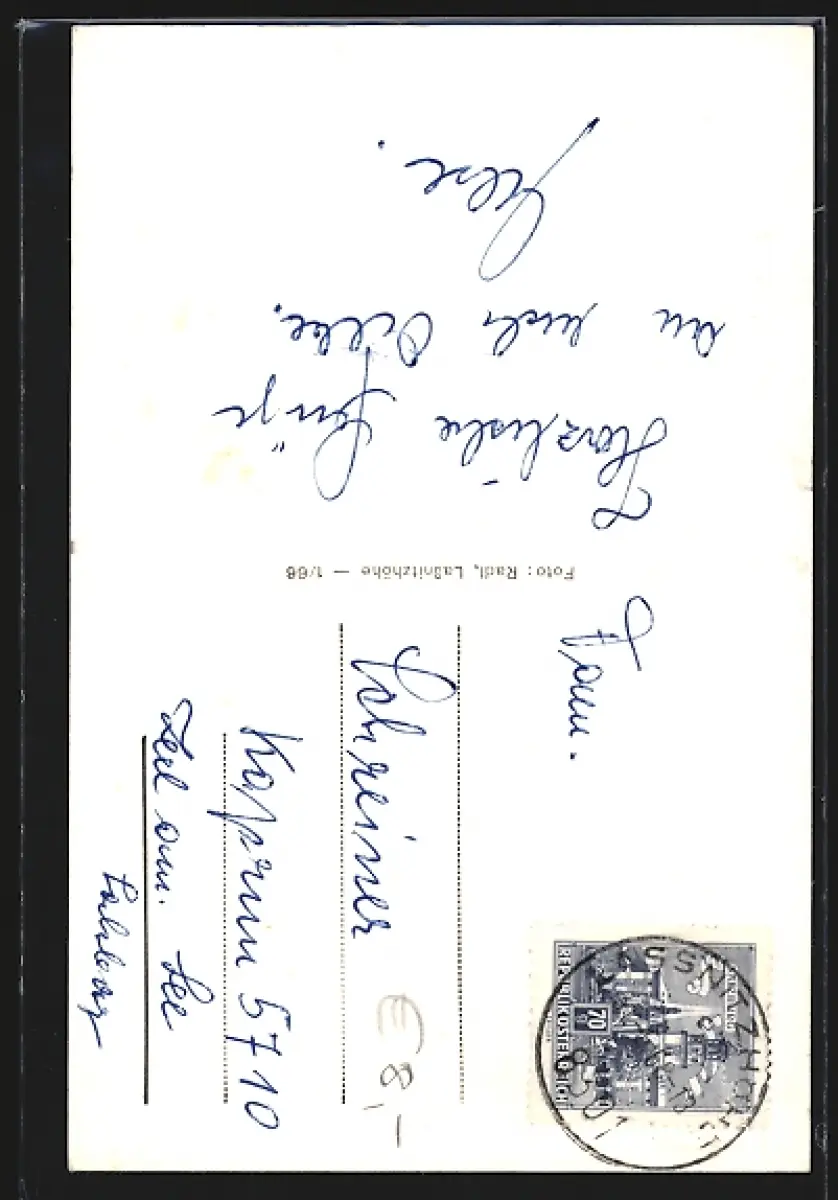 Herzliche Grüße
an euch Alle.
Foto: Radl, Laßnitzhöhe — 1/66
Fam.
Schreiner
Kaprun 5710
Zell am. See
Salzburg
€ 8,-
REPUBLIK ÖSTERREICH
70
8301